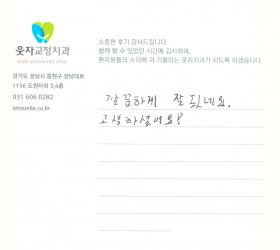 웃자교정치과
orthodontic clinic
경기도 성남시 중원구 성남대로
1156 도원타워 3,4층
031 606-0282
lehsmile.co.kr
소중한 후기 감사드립니다.
함께 할 수 있었던 시간에 감사하며,
환자분들의 소리에 귀 기울이는 웃자치과가 되도록 하겠습니다.
깔끔하게 잘 됐네요.
고생하셨어요!